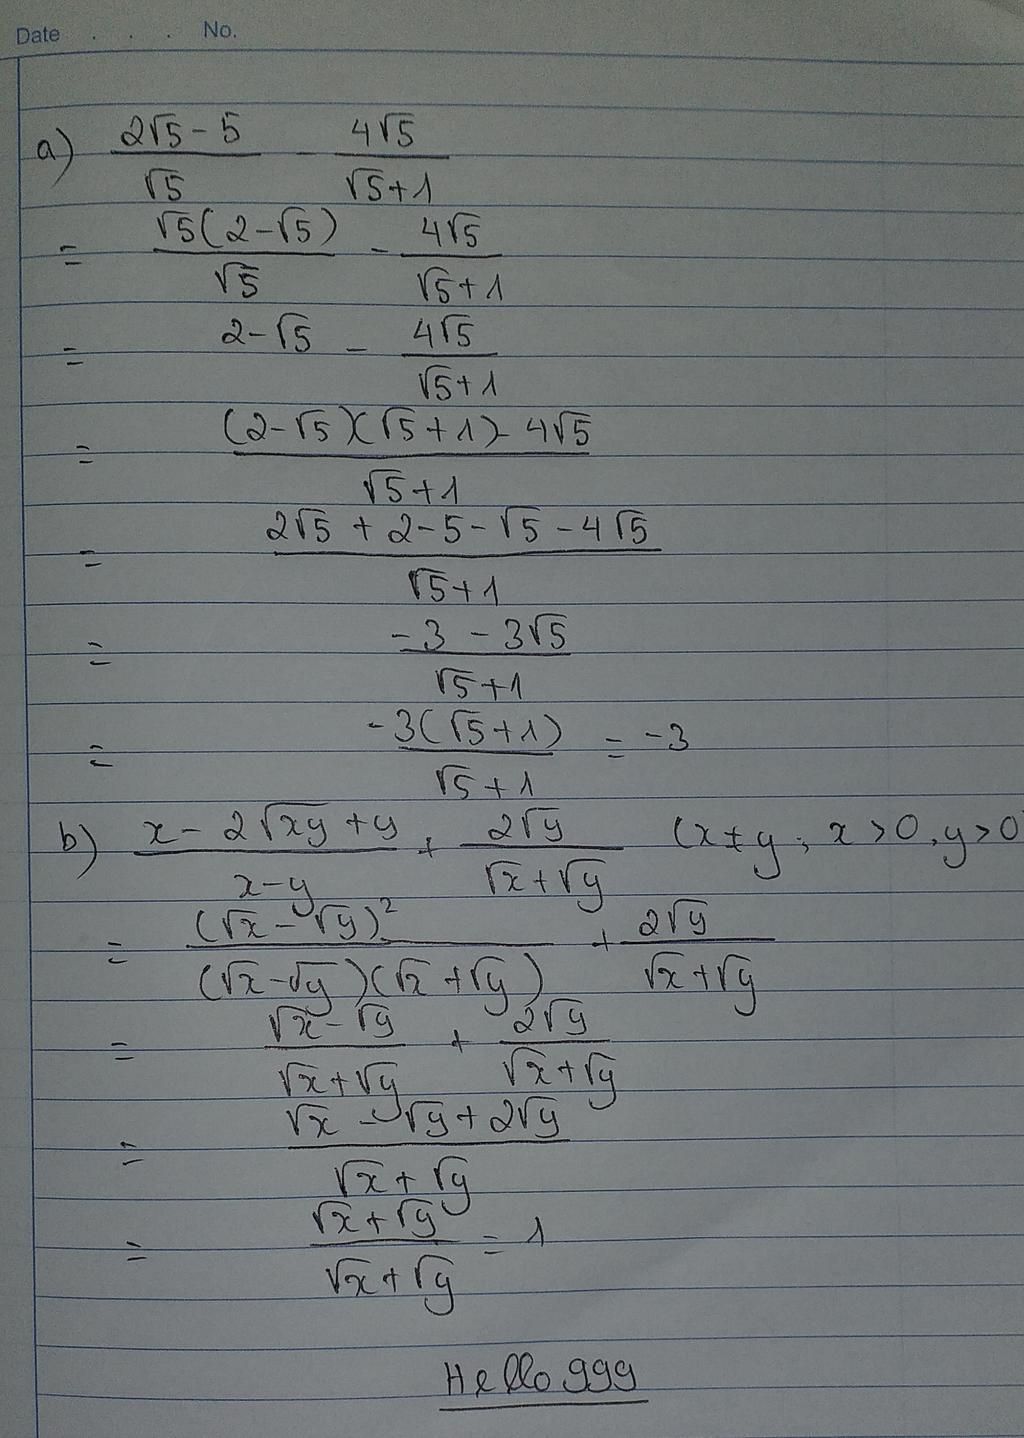 Date . . . No.
a) (2√5 - 5)/√5 - 4√5/(√5+1)
= √5(2-√5)/√5 - 4√5/(√5+1)
= 2-√5 - 4√5/(√5+1)
= ((2-√5)(√5+1) - 4√5)/(√5+1)
= (2√5 + 2 - 5 - √5 - 4√5)/(√5+1)
= (-3 - 3√5)/(√5+1)
= -3(√5+1)/(√5+1) = -3
b) (x - 2√xy + y)/(x-y) + 2√y/(√x+√y) (x≠y; x>0, y>0
= (√x-√y)²/((√x-√y)(√x+√y)) + 2√y/(√x+√y)
= (√x-√y)/(√x+√y) + 2√y/(√x+√y)
= (√x - √y + 2√y)/(√x+√y)
= (√x+√y)/(√x+√y) = 1
Hello 999